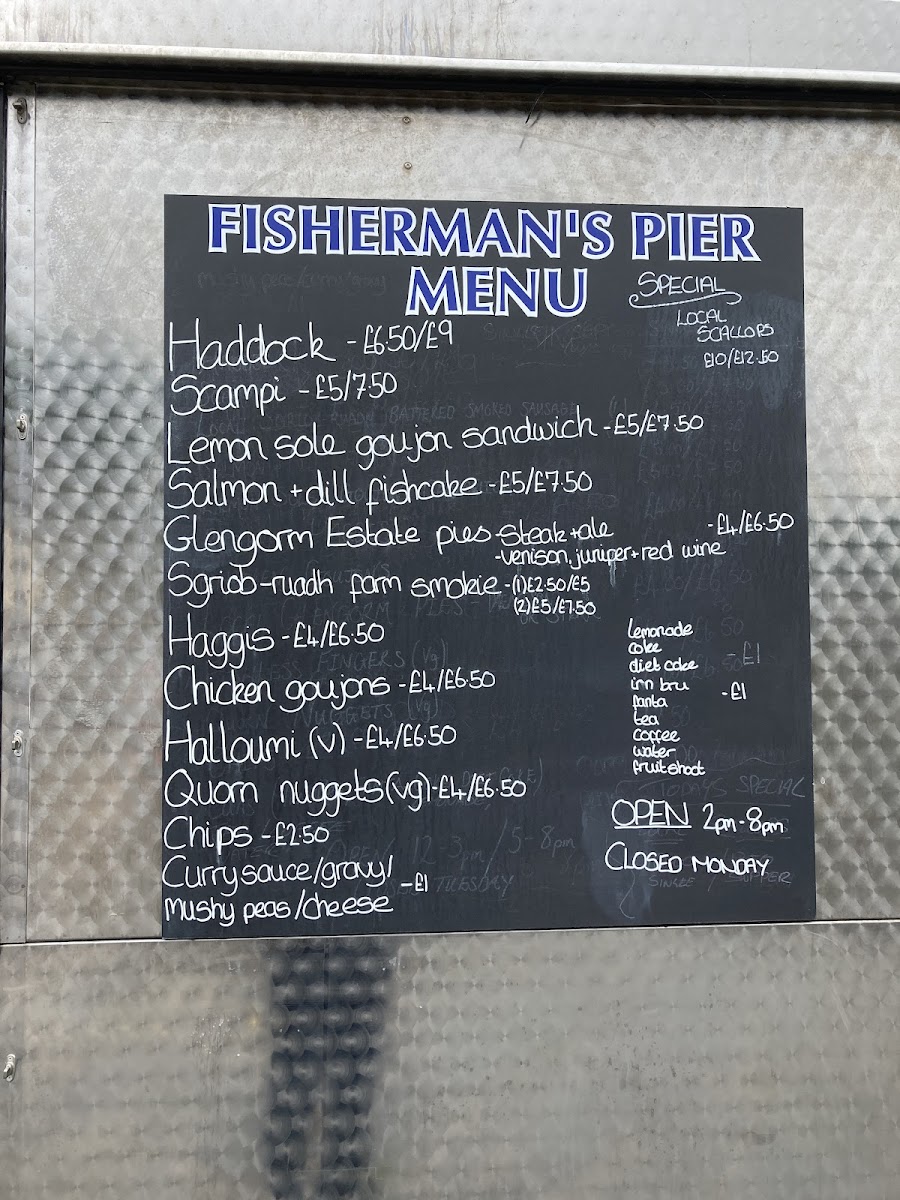 FISHERMAN'S PIER
MENU
SPECIAL
LOCAL
SCALLOPS
£10/£12.50
Haddock - £6.50/£9
Scampi - £5/7.50
Lemon sole goujon sandwich - £5/£7.50
Salmon + dill fishcake - £5/£7.50
Glengorm Estate pies - Steak + ale - £4/£6.50
- venison, juniper + red wine
Sgriob-ruadh farm smokie - (1) £2.50/£5
(2) £5/£7.50
Haggis - £4/£6.50
Chicken goujons - £4/£6.50
Halloumi (v) - £4/£6.50
Quorn nuggets (vg) - £4/£6.50
Chips - £2.50
Curry sauce/gravy/
mushy peas/cheese - £1
lemonade
coke
diet coke
irn bru
fanta - £1
tea
coffee
water
fruitshoot
OPEN 2pm - 8pm
CLOSED MONDAY